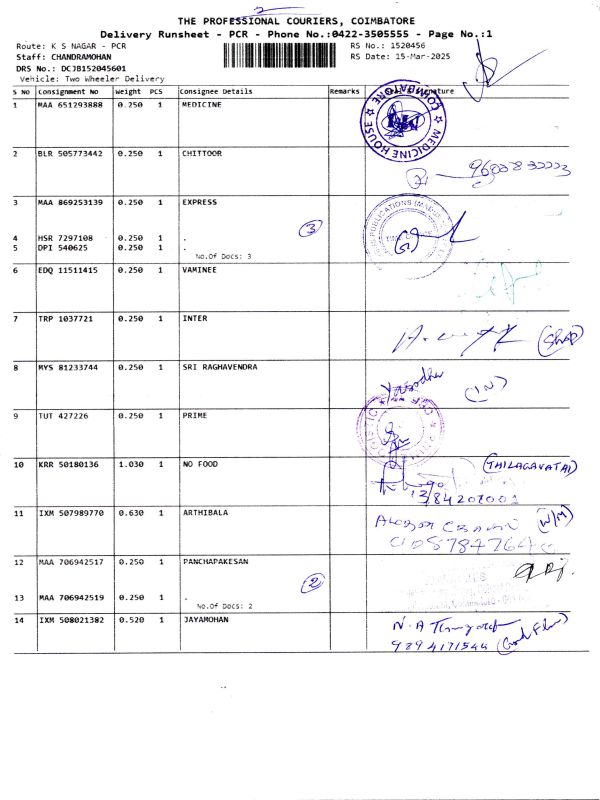 2
THE PROFESSIONAL COURIERS, COIMBATORE
Delivery Runsheet - PCR - Phone No.:0422-3505555 - Page No.:1
Route: K S NAGAR - PCR
RS No.: 1520456
Staff: CHANDRAMOHAN
RS Date: 15-Mar-2025
DRS No.: DCJB152045601
Vehicle: Two Wheeler Delivery
S No Consignment No Weight PCS Consignee Details Remarks Signature
1 MAA 651293888 0.250 1 MEDICINE
COIMBATORE
MEDICINE HOUSE
2 BLR 505773442 0.250 1 CHITTOOR
3 MAA 869253139 0.250 1 EXPRESS
3
4 HSR 7297108 0.250 1 .
5 DPI 540625 0.250 1 .
No.Of Docs: 3
6 EDQ 11511415 0.250 1 VAMINEE
7 TRP 1037721 0.250 1 INTER
(Shop)
8 MYS 81233744 0.250 1 SRI RAGHAVENDRA
Yasodha
(IN)
9 TUT 427226 0.250 1 PRIME
10 KRR 50180136 1.030 1 NO FOOD
(THILAGAVATHI)
11 IXM 507989770 0.630 1 ARTHIBALA
(W/M)
12 MAA 706942517 0.250 1 PANCHAPAKESAN
2
13 MAA 706942519 0.250 1 .
No.Of Docs: 2
14 IXM 508021382 0.520 1 JAYAMOHAN
N.A
9894171544